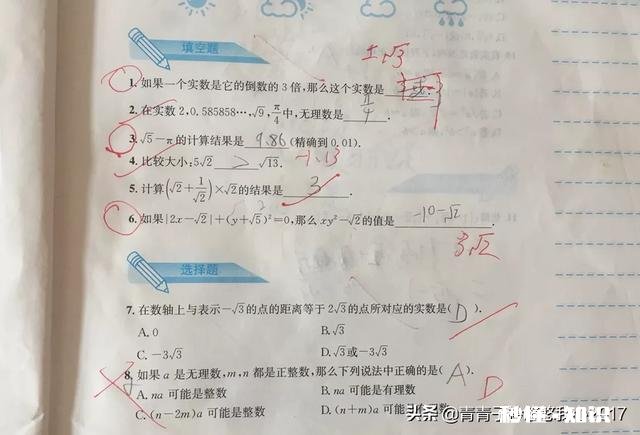 填空题
±√3
1. 如果一个实数是它的倒数的3倍,那么这个实数是
2. 在实数2,0.585858…,√9,π/4中,无理数是 π/4 .
3. √5-π的计算结果是 9.86 (精确到0.01).
4. 比较大小:5√2 > √13. -1.13
5. 计算(√2+1/√2)×√2的结果是 3 .
6. 如果|2x-√2|+(y+√5)²=0,那么xy²-√2的值是 -10-√2
选择题
7. 在数轴上与表示-√3的点的距离等于2√3的点所对应的实数是( D ).
A. 0 B. √3
C. -3√3 D. √3或-3√3
8. 如果a是无理数,m,n都是正整数,那么下列说法中正确的是( A ).
A. na可能是整数 B. na可能是有理数 D
C. (n-2m)a可能是整数 D. (n+m)a可能
头条 @青青
17